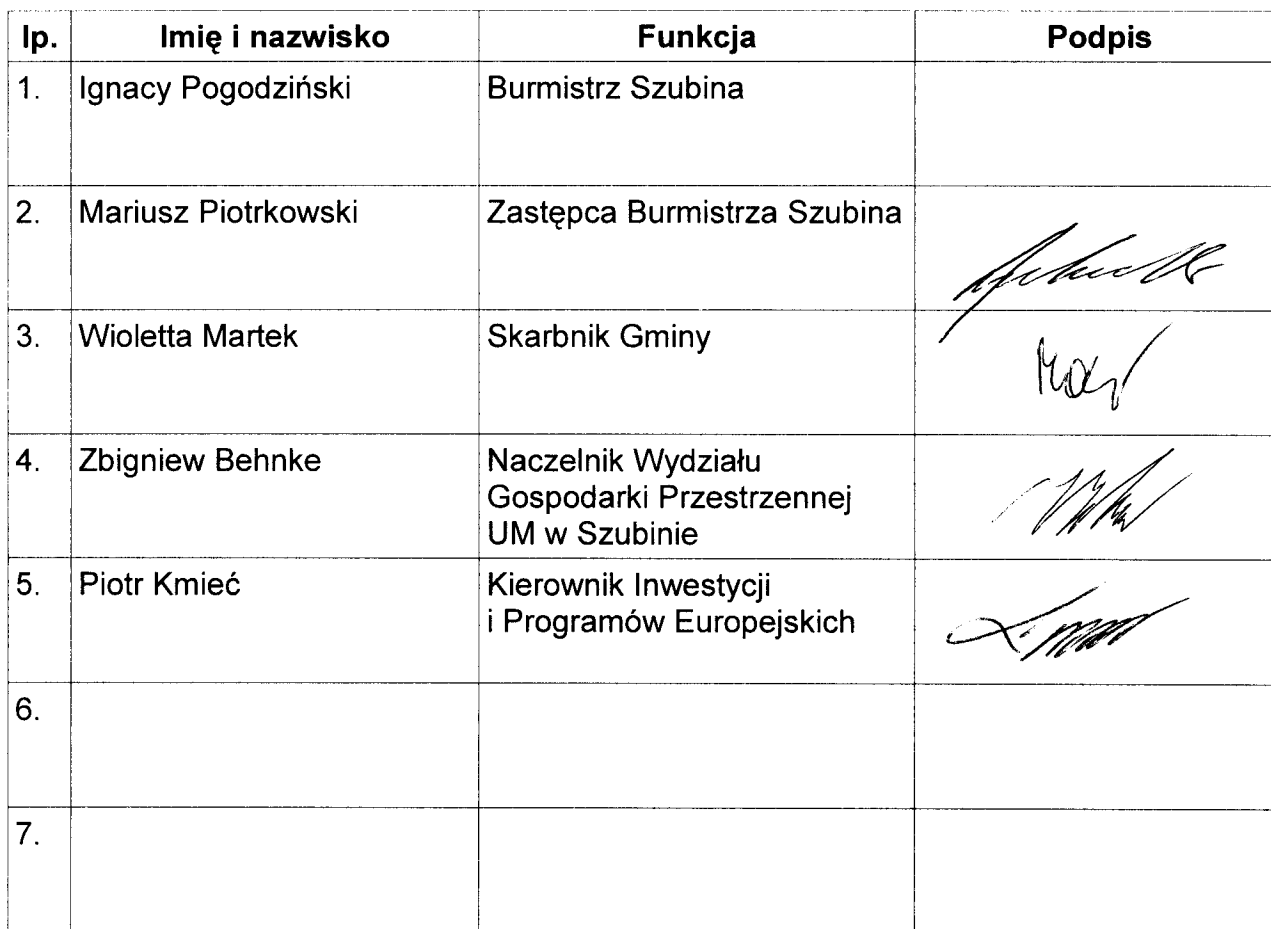 lp. Imię i nazwisko Funkcja Podpis
1. Ignacy Pogodziński Burmistrz Szubina
2. Mariusz Piotrkowski Zastępca Burmistrza Szubina
3. Wioletta Martek Skarbnik Gminy
4. Zbigniew Behnke Naczelnik Wydziału
Gospodarki Przestrzennej
UM w Szubinie
5. Piotr Kmieć Kierownik Inwestycji
i Programów Europejskich
6.
7.